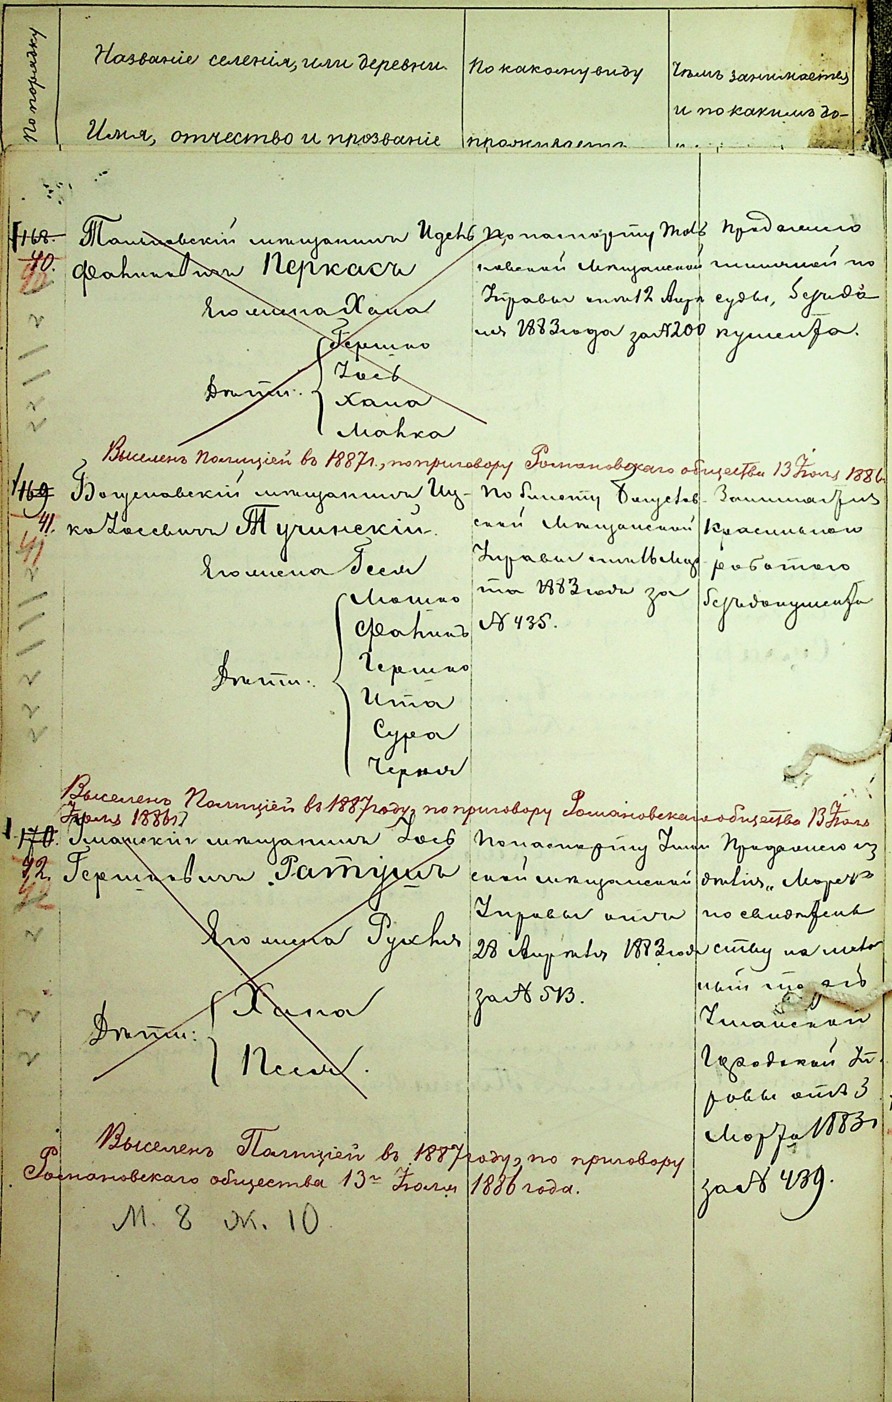 По порядку
Названіе селенія, или деревни
Имя, отчество и прозваніе
По какому виду
проживаетъ
Чѣмъ занимается
и по какимъ до-
168.
40.
мѣщанинъ
Перкасъ
Его жена Хана
Гершко
Дѣти: Іось
Хана
Манка
По паспорту
Мѣщанской
Управы отъ 12 Апрѣ
ля 1883 года за № 200
Продажею
глиняной по
суды, безъ до
кумента.
Выселенъ Полиціей въ 1887 г., по приговору Романовскаго общества 13 Іюля 1886
169
41.
41
Богуславскій мѣщанинъ Иц-
ко Іосевичъ Тучинскій.
Его жена Геся
Мошко
Файвишъ
Гершко
Дѣти:
Ита
Сура
Черня
По билету Богуслав-
ской Мѣщанской
Управы отъ 16 Мар
та 1883 года за
№ 435.
Занимается
Красильною
работою
безъ документа
Выселенъ Полиціей въ 1887 году, по приговору Романовскаго общества 13 Іюля
Іюля 1886 г.
170.
42.
42
Уманскій мѣщанинъ Іось
Гершковичъ Ратушъ
Его жена Рухля
Хана
Дѣти:
Песя.
По паспорту Уман
ской мѣщанской
Управы отъ
28 Апрѣля 1883 года
за № 513.
Продажею из
дѣлія
по свидѣтель
ству на мелоч
ный торгъ
Уманской
Городской Уп
равы отъ 3
Марта 1883 г
за № 439.
Выселенъ Полиціей въ 1887 году, по приговору
Романовскаго общества 13 Іюля 1886 года.
М. 8 Ж. 10